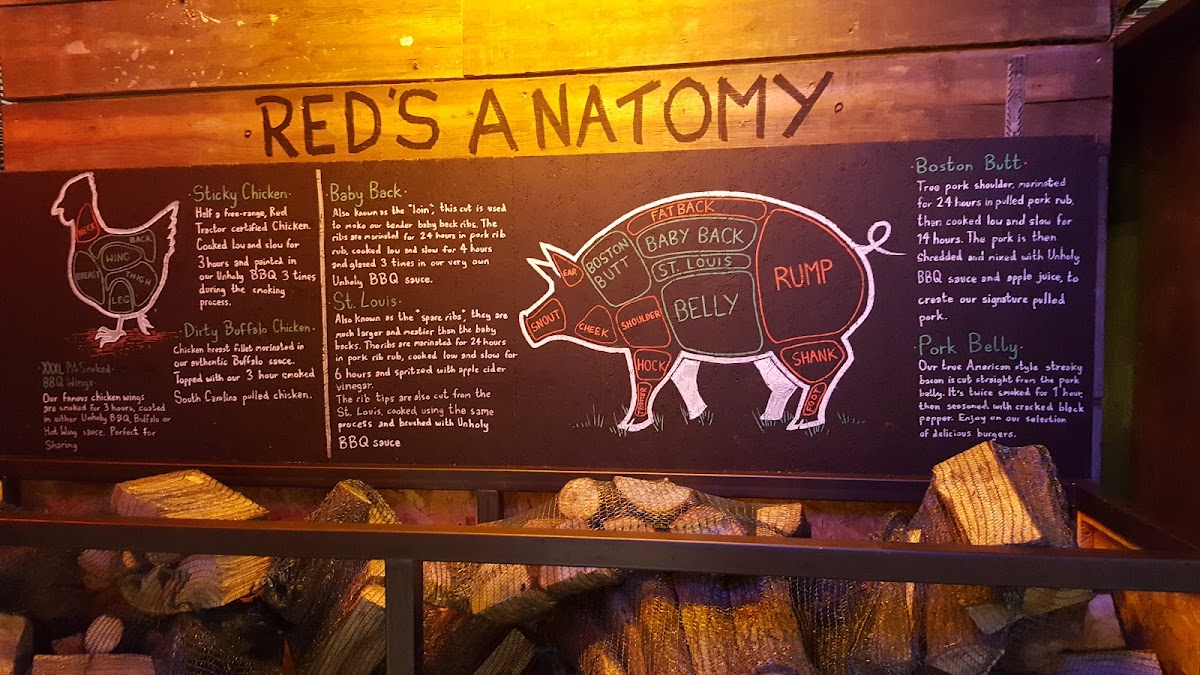 RED'S ANATOMY
Sticky Chicken
Half a free-range, Red
Tractor certified Chicken.
Cooked low and slow for
3 hours and painted in
our Unholy BBQ 3 times
during the smoking
process.
Dirty Buffalo Chicken
Chicken breast fillet marinated in
our authentic Buffalo sauce.
Topped with our 3 hour smoked
South Carolina pulled chicken.
XXXL Pit Smoked
BBQ Wings
Our famous chicken wings
are smoked for 3 hours, coated
in either Unholy BBQ, Buffalo or
Hot Wing sauce. Perfect for
Sharing
NECK
BACK
WING
BREAST
THIGH
LEG
Baby Back
Also known as the "loin", this cut is used
to make our tender baby back ribs. The
ribs are marinated for 24 hours in pork rib
rub, cooked low and slow for 4 hours
and glazed 3 times in our very own
Unholy BBQ sauce.
St. Louis
Also known as the "spare ribs", they are
much larger and meatier than the baby
backs. The ribs are marinated for 24 hours
in pork rib rub, cooked low and slow for
6 hours and spritzed with apple cider
vinegar.
The rib tips are also cut from the
St. Louis, cooked using the same
process and brushed with Unholy
BBQ sauce
FATBACK
BOSTON
BUTT
BABY BACK
ST. LOUIS
EAR
RUMP
BELLY
SNOUT
CHEEK
SHOULDER
HOCK
SHANK
TROTTER
FOOT
Boston Butt
True pork shoulder, marinated
for 24 hours in pulled pork rub,
then cooked low and slow for
14 hours. The pork is then
shredded and mixed with Unholy
BBQ sauce and apple juice, to
create our signature pulled
pork.
Pork Belly
Our true American style streaky
bacon is cut straight from the pork
belly. It's twice smoked for 1 hour,
then seasoned with cracked black
pepper. Enjoy on our selection
of delicious burgers.